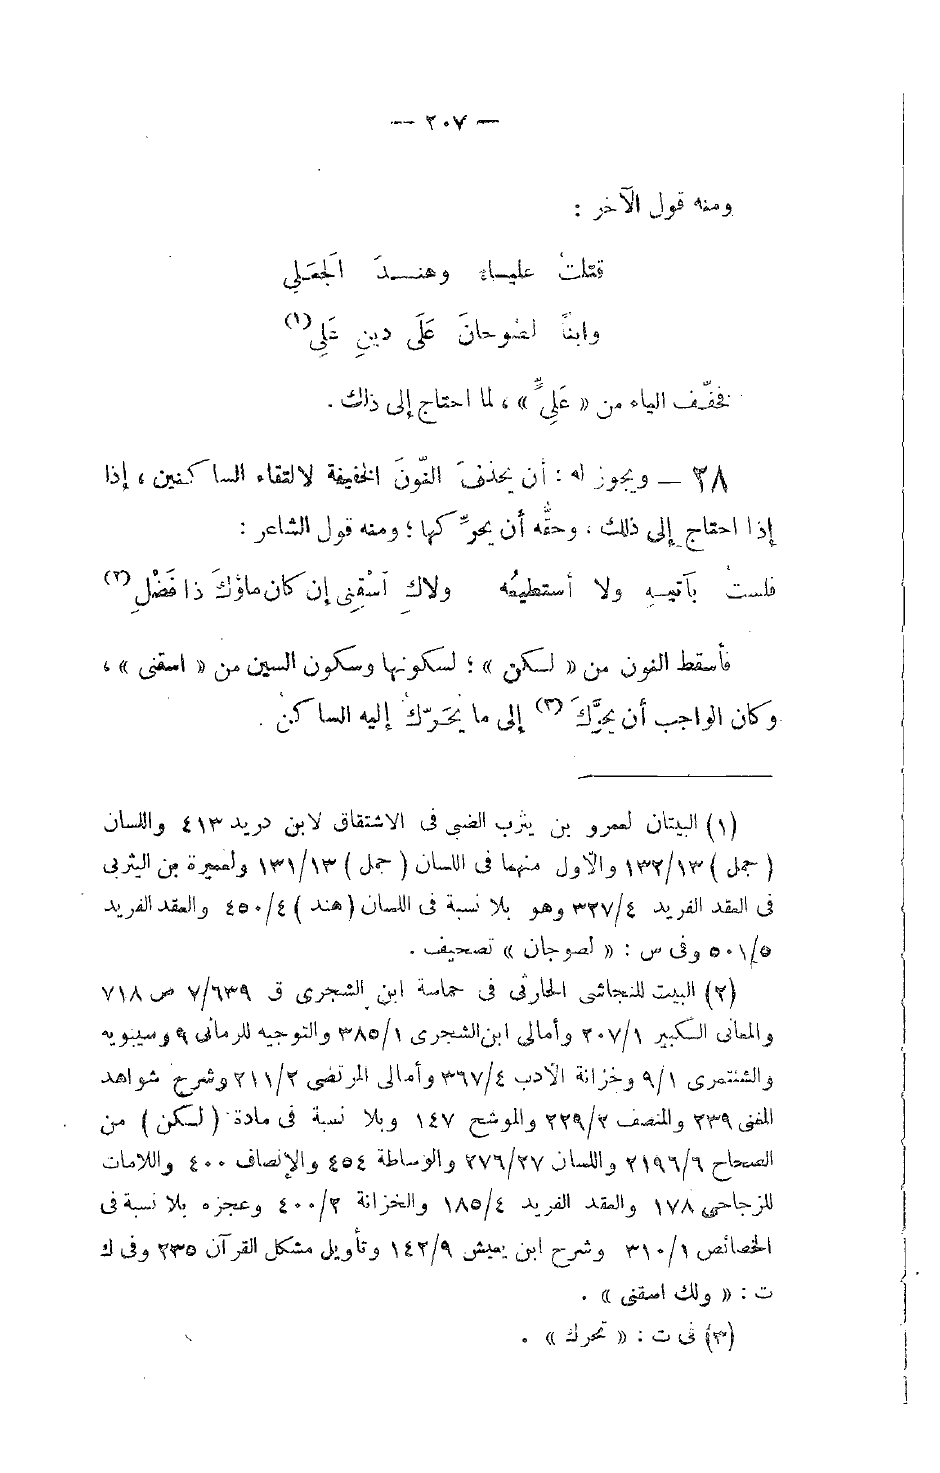 — ٢٠٧ —
ومنه قول الآخر :
قتلتُ علياء وهندَ الجَمَلِي
وابناً لصُوحانَ عَلَى دينِ عَلِي (١)
فخفّف الياء من « عَلِيٍّ » ، لما احتاج إلى ذلك .
٢٨ — ويجوز له : أن يحذفَ النّونَ الخفيفة لالتقاء الساكنين ، إذا
إذا احتاج إلى ذلك ، وحقُّه أن يحرِّكها ؛ ومنه قول الشاعر :
فلستُ بآتيـهِ ولا أستطيعُه ولاكِ اَسْقِنِى إن كان ماؤكَ ذا فَضْلِ (٢)
فأسقط النون من « لـكن » ؛ لسكونها وسكون السين من « اسقنى » ،
وكان الواجب أن يحرَّكَ (٣) إلى ما يُحَرّكُ إليه الساكنُ .
(١) البيتان لعمرو بن يثرب الضبى فى الاشتقاق لابن دريد ٤١٣ واللسان
( جمل ) ١٣٢/١٣ والأول منهما فى اللسان ( جمل ) ١٣١/١٣ ولعميرة بن اليثربى
فى العقد الفريد ٣٢٧/٤ وهو بلا نسبة فى اللسان ( هند ) ٤٥٠/٤ والعقد الفريد
٥٠١/٥ وفى س : « لصوجان » تصحيف .
(٢) البيت للنجاشى الحارثى فى حماسة ابن الشجرى ق ٧/٦٣٩ ص ٧١٨
والمعانى الـكبير ٢٠٧/١ وأمالى ابن الشجرى ٣٨٥/١ والتوجيه للرمانى ٩ وسيبويه
والشنتمرى ٩/١ وخزانة الأدب ٣٦٧/٤ وأمالى المرتضى ٢١١/٢ وشرح شواهد
المغنى ٢٣٩ والمنصف ٢٢٩/٢ والموشح ١٤٧ وبلا نسبة فى مادة ( لـكن ) من
الصحاح ٢١٩٦/٦ واللسان ٢٧٦/٢٧ والوساطة ٤٥٤ والإنصاف ٤٠٠ واللامات
للزجاجى ١٧٨ والعقد الفريد ١٨٥/٤ والخزانة ٤٠٠/٢ وعجزه بلا نسبة فى
الخصائص ٣١٠/١ وشرح ابن يعيش ١٤٢/٩ وتأويل مشكل القرآن ٢٣٥ وفى ك
ت : « ولك اسقنى » .
(٣) فى ت : « تحرك » .